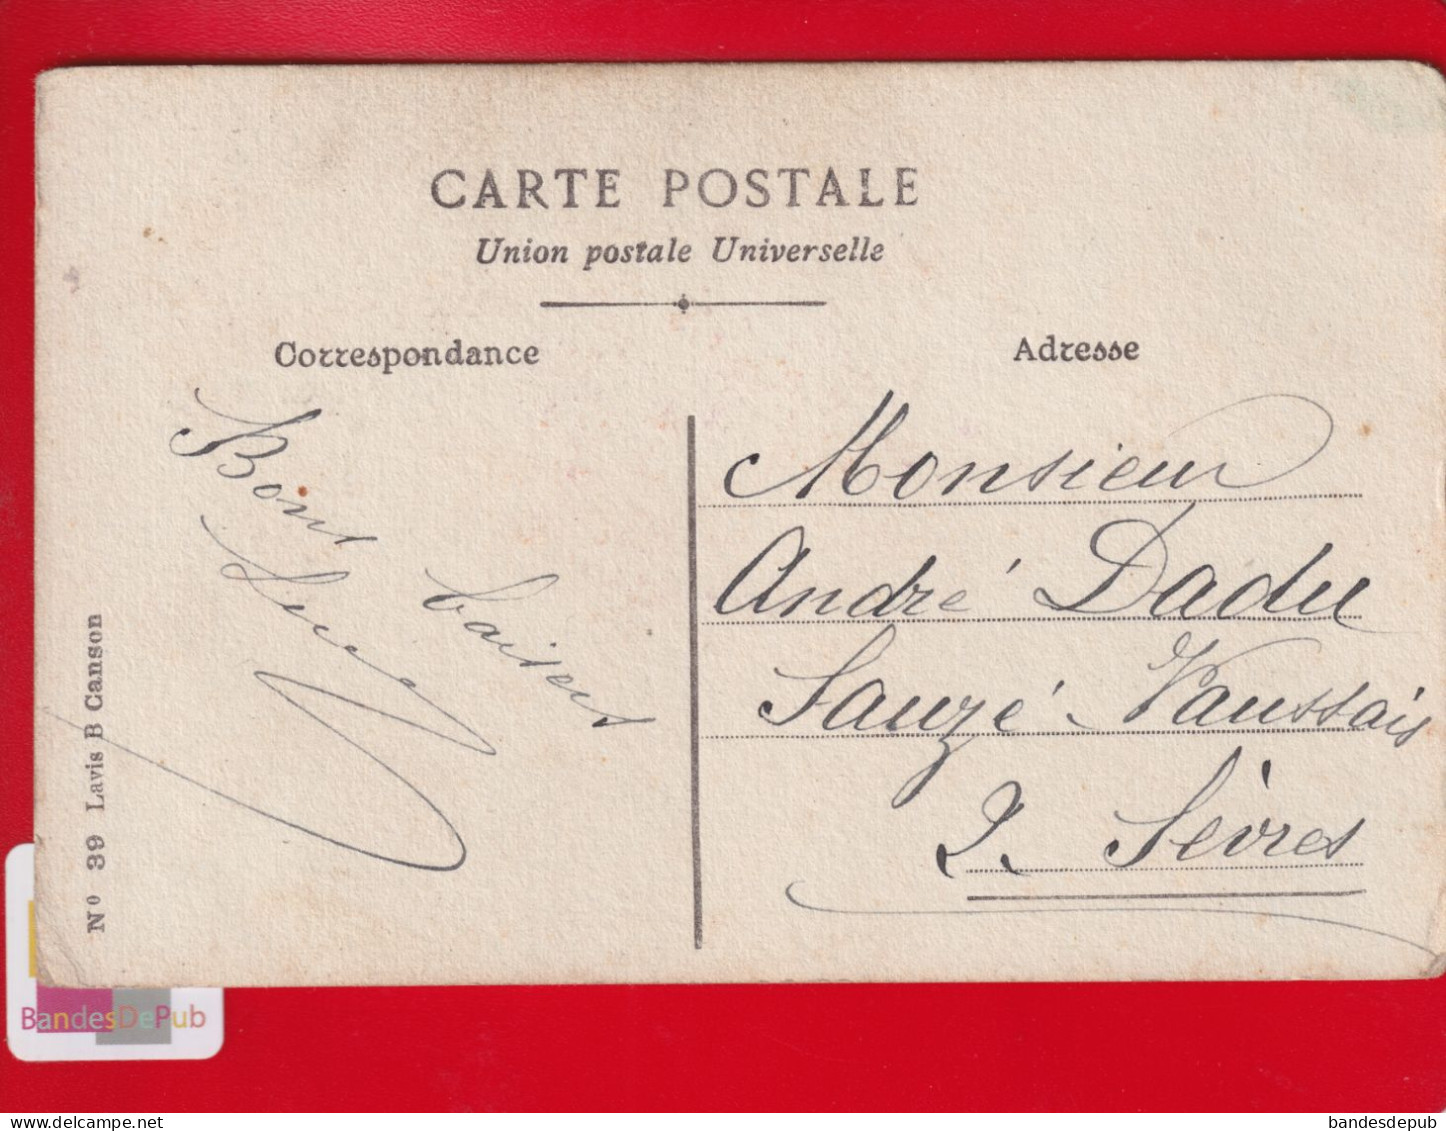 CARTE POSTALE
Union postale Universelle
Correspondance
Adresse
Bons baisers
Monsieur
André Dadu
Sauzé-Vaussais
2 Sèvres
Nº 39 Lavis B Canson
BandesDePub
bandesdepub